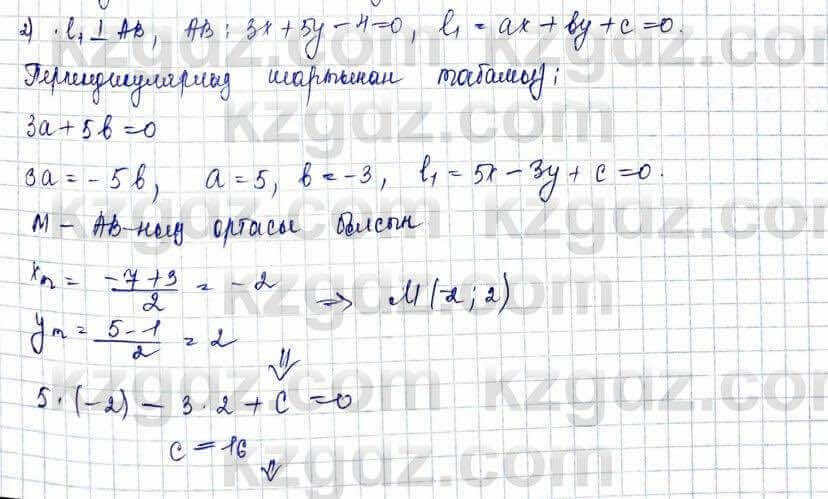 2) l₁ ⊥ AB, AB: 3x + 5y − 4 = 0, l₁ = ax + by + c = 0.
Перпендикулярлық шартынан табамыз;
3a + 5b = 0
3a = −5b, a = 5, b = −3, l₁ = 5x − 3y + c = 0.
M − AB-ның ортасы болсын
xₘ = (−7+3)/2 = −2
⇒ M(−2; 2)
yₘ = (5−1)/2 = 2
⇓
5·(−2) − 3·2 + c = 0
c = 16
⇓
kzgdz.com